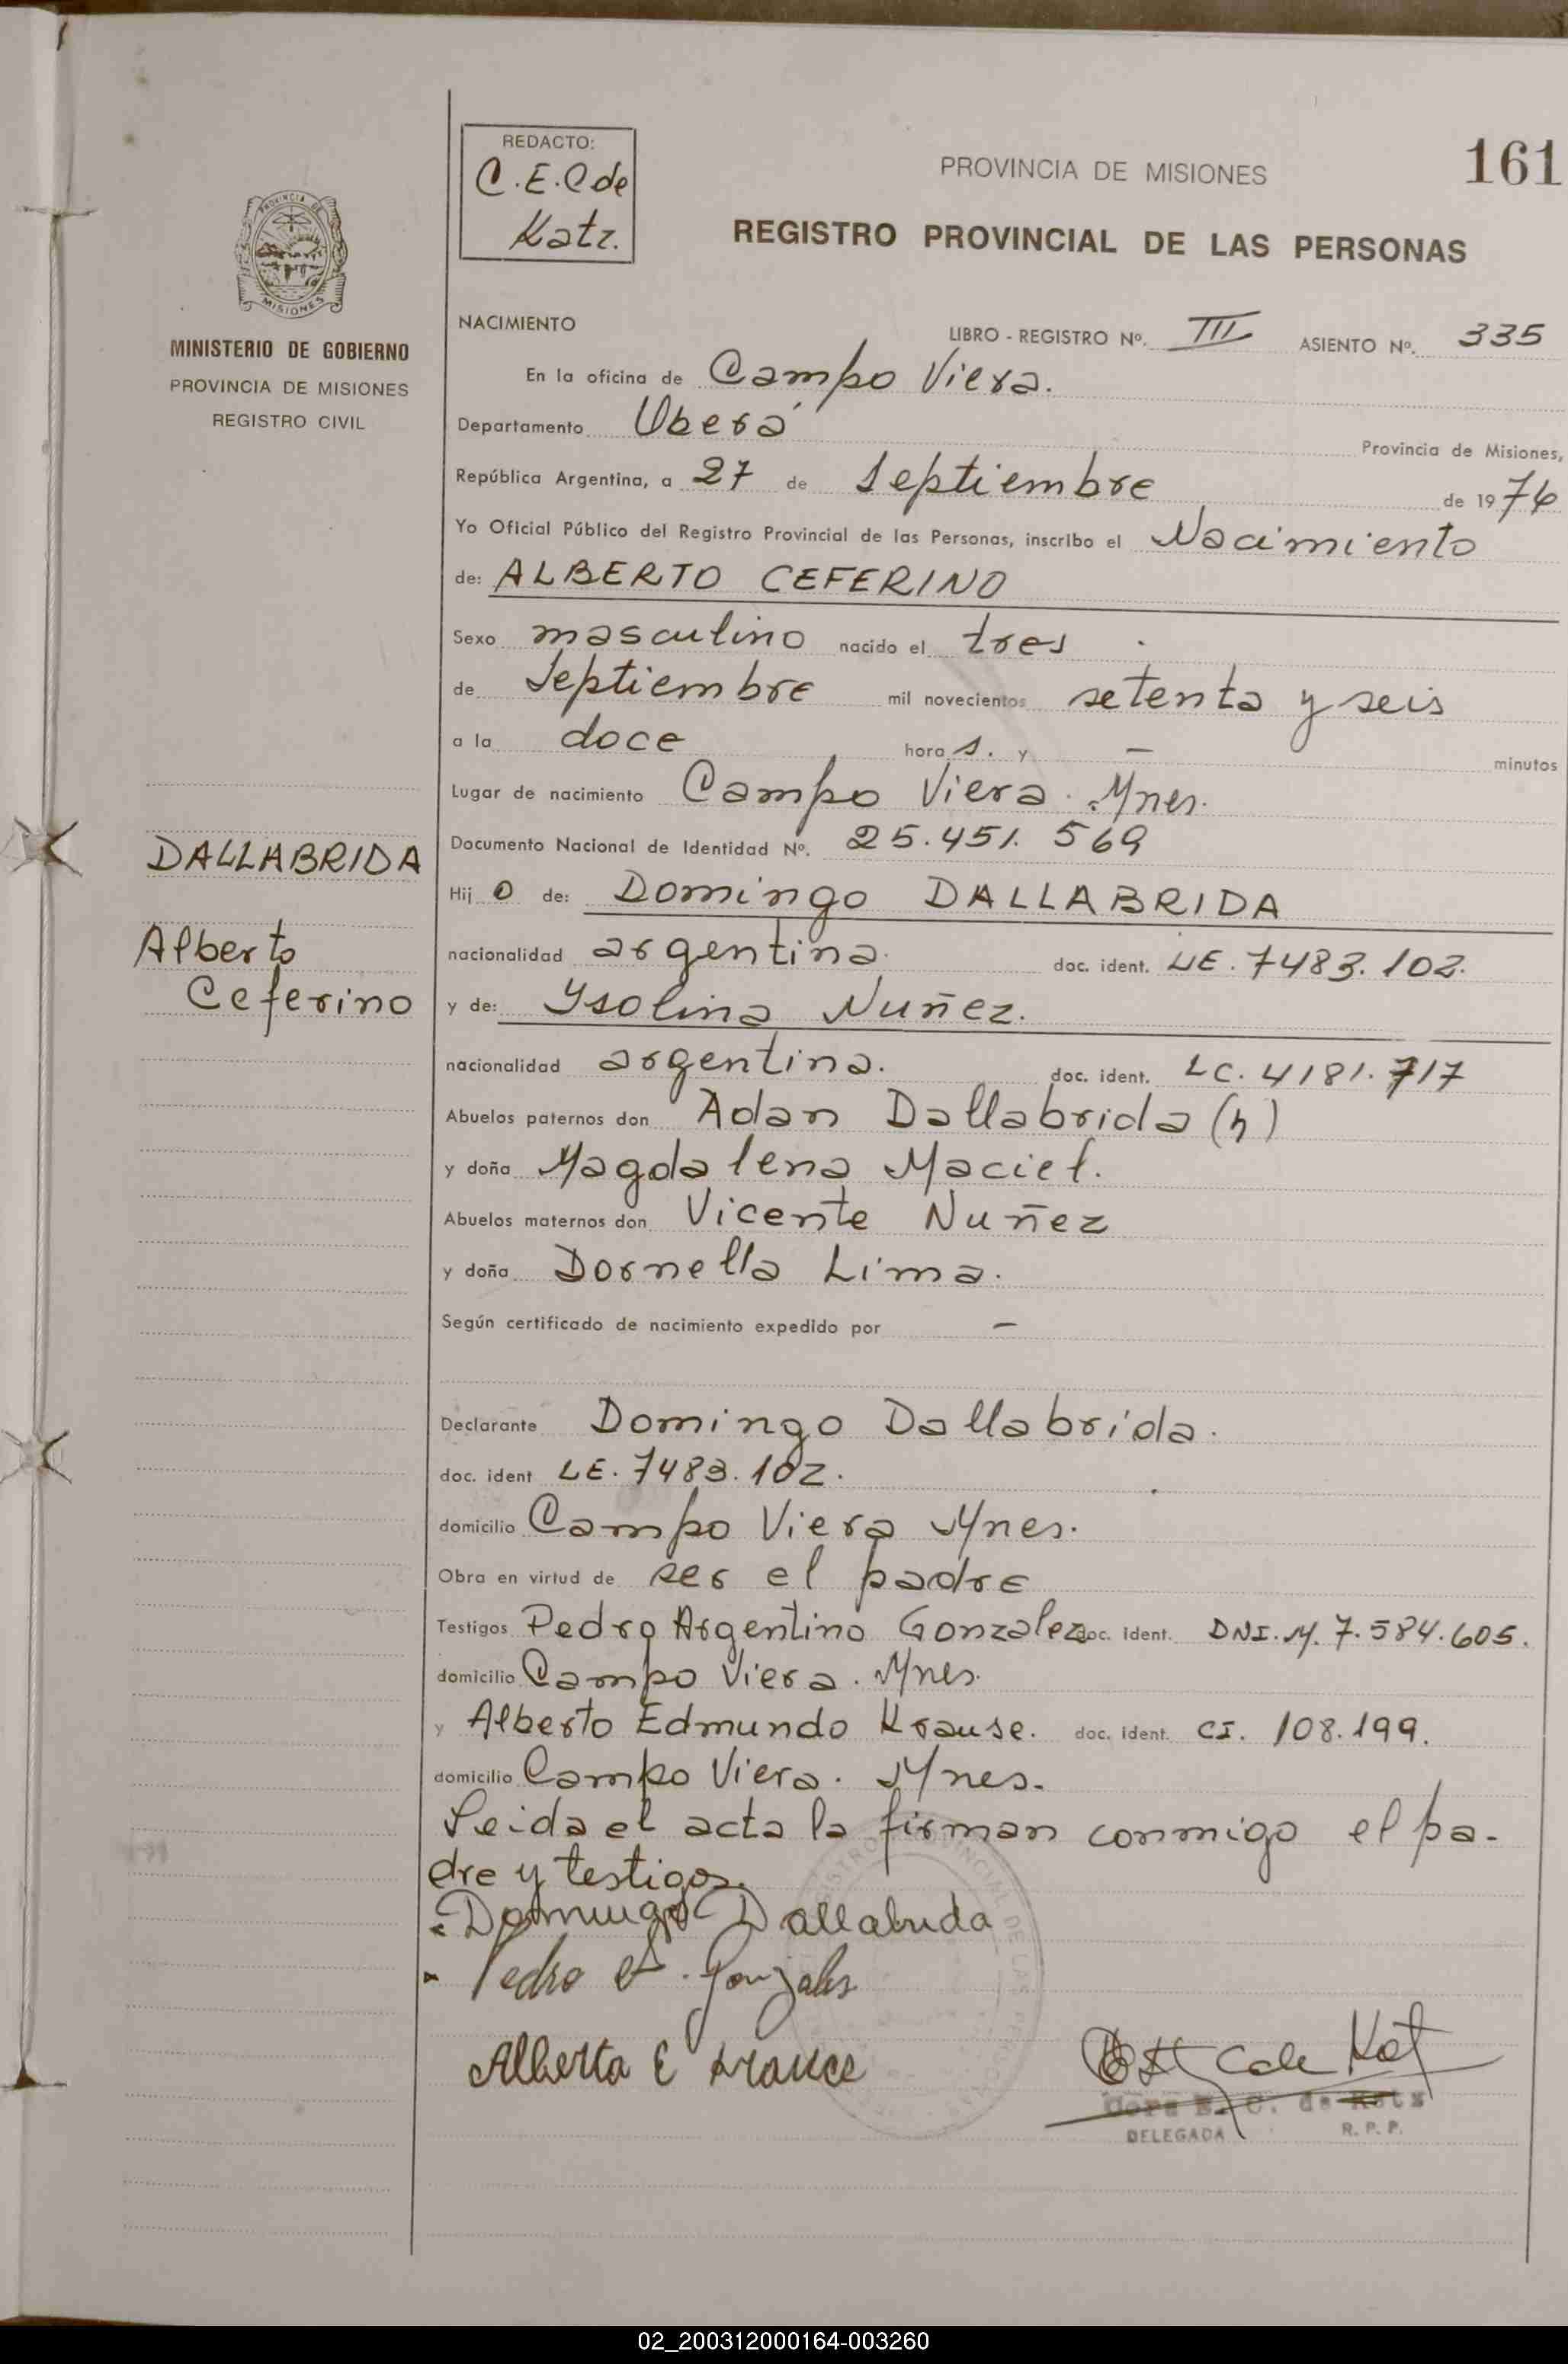 161
REDACTO:
C.E.C de
Katz.
PROVINCIA DE MISIONES
REGISTRO PROVINCIAL DE LAS PERSONAS
PROVINCIA DE
MISIONES
MINISTERIO DE GOBIERNO
PROVINCIA DE MISIONES
REGISTRO CIVIL
DALLABRIDA
Alberto
Ceferino
NACIMIENTO
LIBRO - REGISTRO Nº. III ASIENTO Nº. 335
En la oficina de Campo Viera.
Departamento Oberá Provincia de Misiones,
República Argentina, a 27 de Septiembre de 1976
Yo Oficial Público del Registro Provincial de las Personas, inscribo el Nacimiento
de: ALBERTO CEFERINO
Sexo masculino nacido el tres
de Septiembre mil novecientos setenta y seis
a la doce hora s. y — minutos
Lugar de nacimiento Campo Viera. Mnes.
Documento Nacional de Identidad Nº. 25.451.569
Hij o de: Domingo DALLABRIDA
nacionalidad argentina. doc. ident. LE. 7483.102.
y de: Ysolina Nuñez.
nacionalidad argentina. doc. ident. LC. 4181.717
Abuelos paternos don Adan Dallabrida (h)
y doña Magdalena Maciel.
Abuelos maternos don Vicente Nuñez
y doña Dornella Lima.
Según certificado de nacimiento expedido por —
Declarante Domingo Dallabrida.
doc. ident LE. 7483.102.
domicilio Campo Viera Mnes.
Obra en virtud de ser el padre
Testigos Pedro Argentino Gonzalez doc. ident. DNI.M. 7.584.605.
domicilio Campo Viera. Mnes.
y Alberto Edmundo Krause. doc. ident. CI. 108.199.
domicilio Campo Viera. Mnes.
Leida el acta la firman conmigo el pa-
dre y testigos.
Domingo Dallabrida
Pedro A. Gonzales
Alberto E Krauce
C. de Katz
DELEGADA R. P. P.
02_200312000164-003260